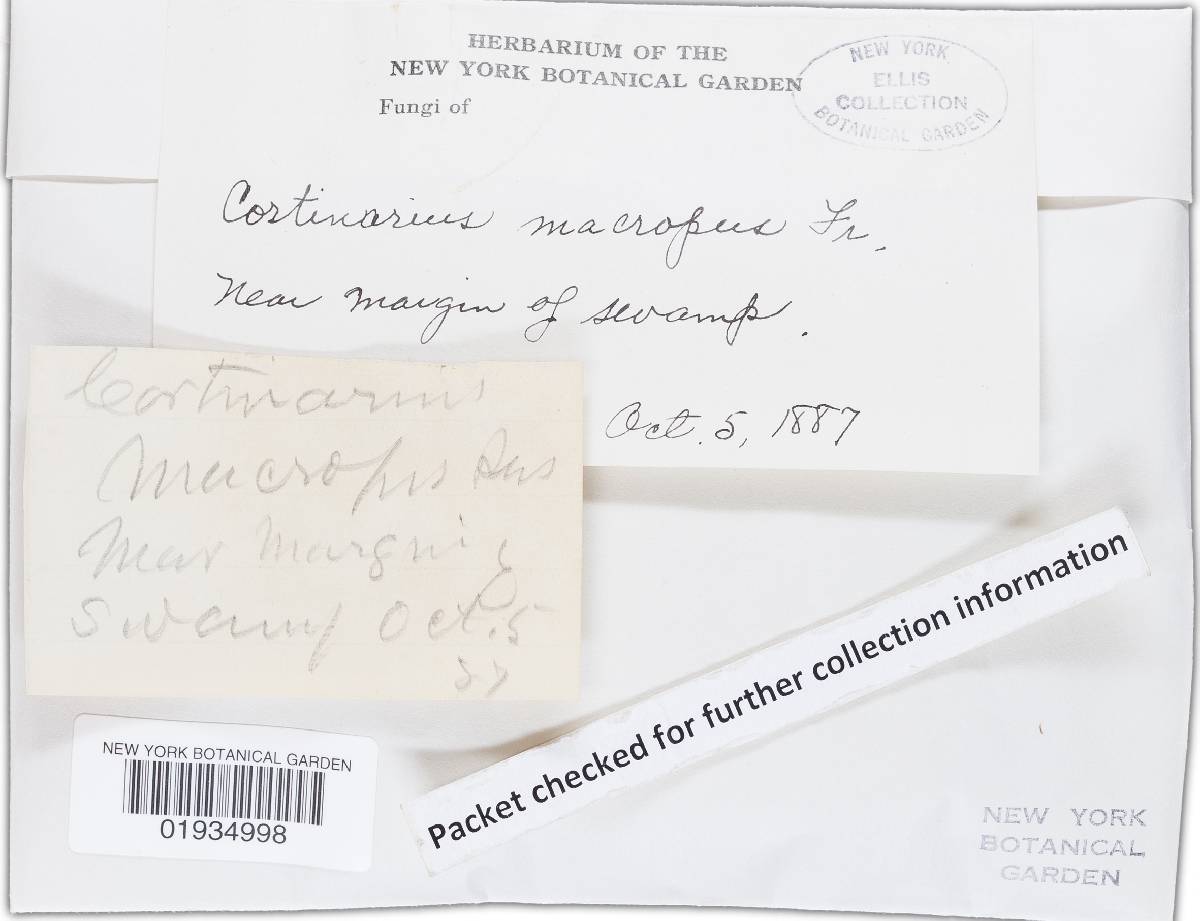 HERBARIUM OF THE
NEW YORK BOTANICAL GARDEN
Fungi of
NEW YORK
ELLIS
COLLECTION
BOTANICAL GARDEN
Cortinarius macropus Fr.
Near margin of swamp.
Oct. 5, 1887
Cortinarius
Macropus
Near Margin of
Swamp Oct. 5
87
NEW YORK BOTANICAL GARDEN
01934998
Packet checked for further collection information
NEW YORK
BOTANICAL
GARDEN